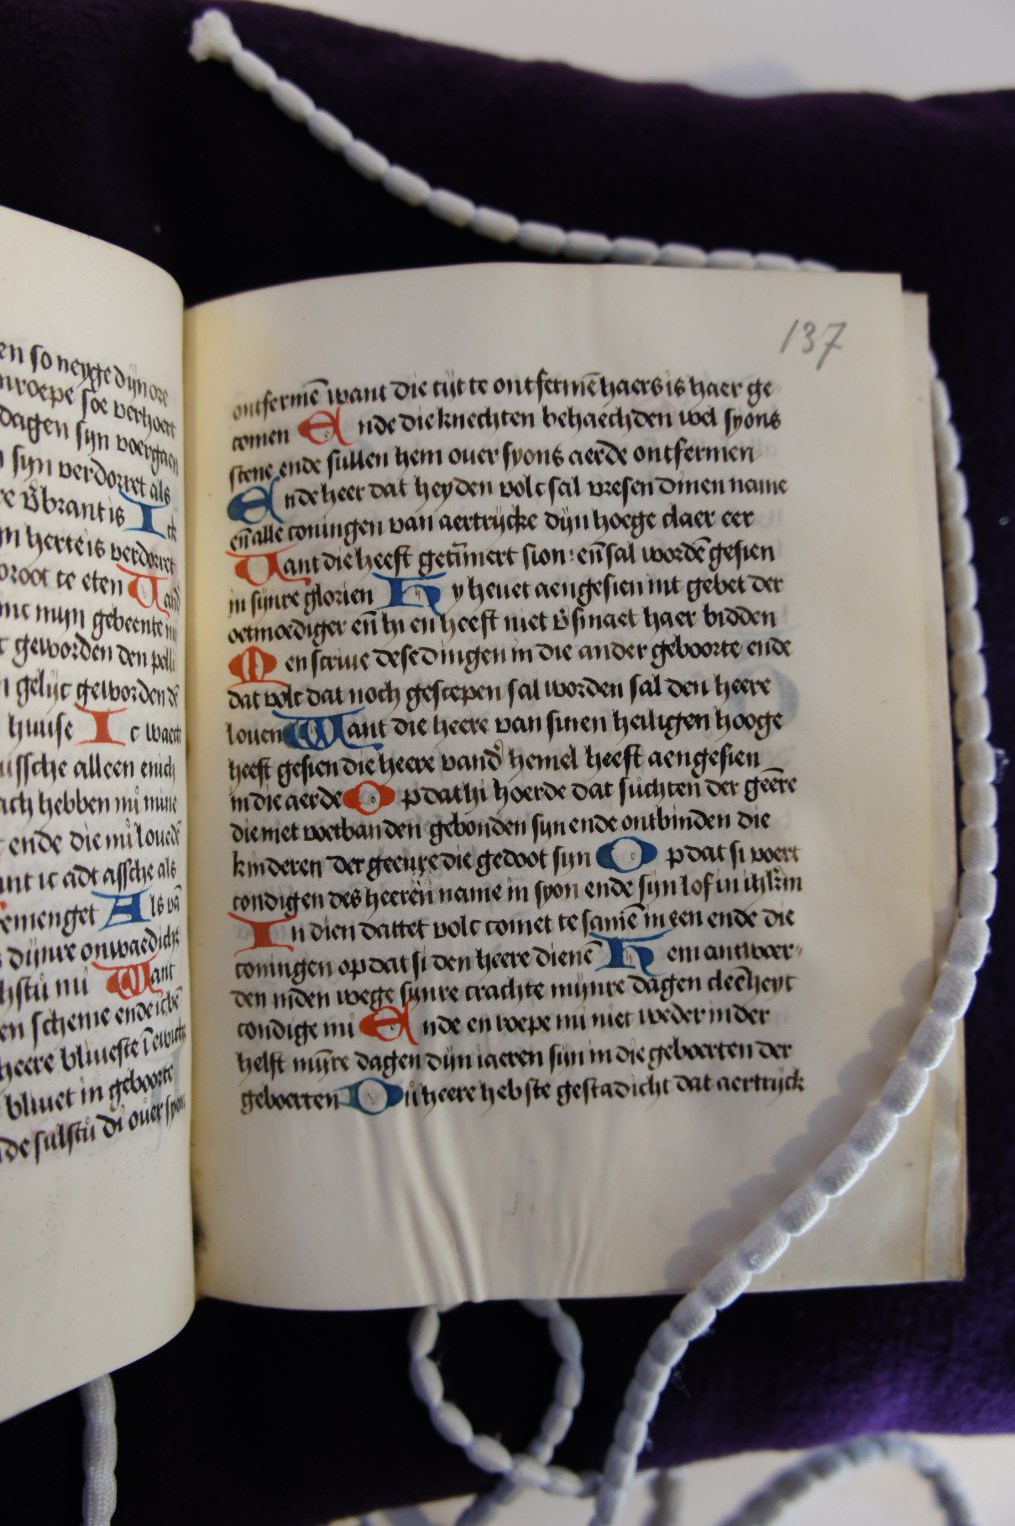 en so neyge dijn ore
nroepe soe verhoert
dagen syn voergaen
syn verdorret als
re v̉brant is Ick
m herte is verdorret
broot te eten Want
mt mijn gebeente
geworden den pelli
n gelijc geworden
huuse Ic waect
ussche alleen enich
ach hebben mi mine
ende die mi loued̄
ant ic adt assche als
emenget Als vā
dijnre onwaedicht
hstu mi Want
en scheme ende ic bē
heere bliueste ī ewich
bliuet in geboorte
de sulstu di ouer syon
137
ontfermē want die tijt te ontfermē haers is haer ge
comen Ende die knechten behaechden wel syons
stene ende sullen hem ouer syons aerde ontfermen
Ende heer dat heyden volc sal vresen dinen name
en̄ alle coningen van aertrijcke dijn hoege claer eer
Want die heeft getīmert sion: en̄ sal wordē gesien
in sijnre glorien Hy heuet aengesien int gebet der
oetmoediger en̄ hi en heeft niet v̉smaet haer bidden
Men scriue dese dingen in die ander geboorte ende
dat volc dat noch gescepen sal worden sal den heere
louen Want die heere van sinen heiligen hooge
heeft gesien die heere vand̉ hemel heeft aengesien
in die aerde Op dat hi hoerde dat suchten der geēre
die met voetbanden gebonden syn ende ontbinden die
kinderen der geenre die gedoot sijn Op dat si voert
condigen des heeren name in syon ende sijn lof in ihl̄rm
In dien dattet volc comet te samē in een ende die
coningen op dat si den heere dienē Hem antwoer-
den in den wege synre crachte mijnre dagen cleēheyt
condige mi Ende en roepe mi niet weder in der
helft mijre dagen dijn iaeren sijn in die geboerten der
geboerten Du heere hebste gestadicht dat aertrijck